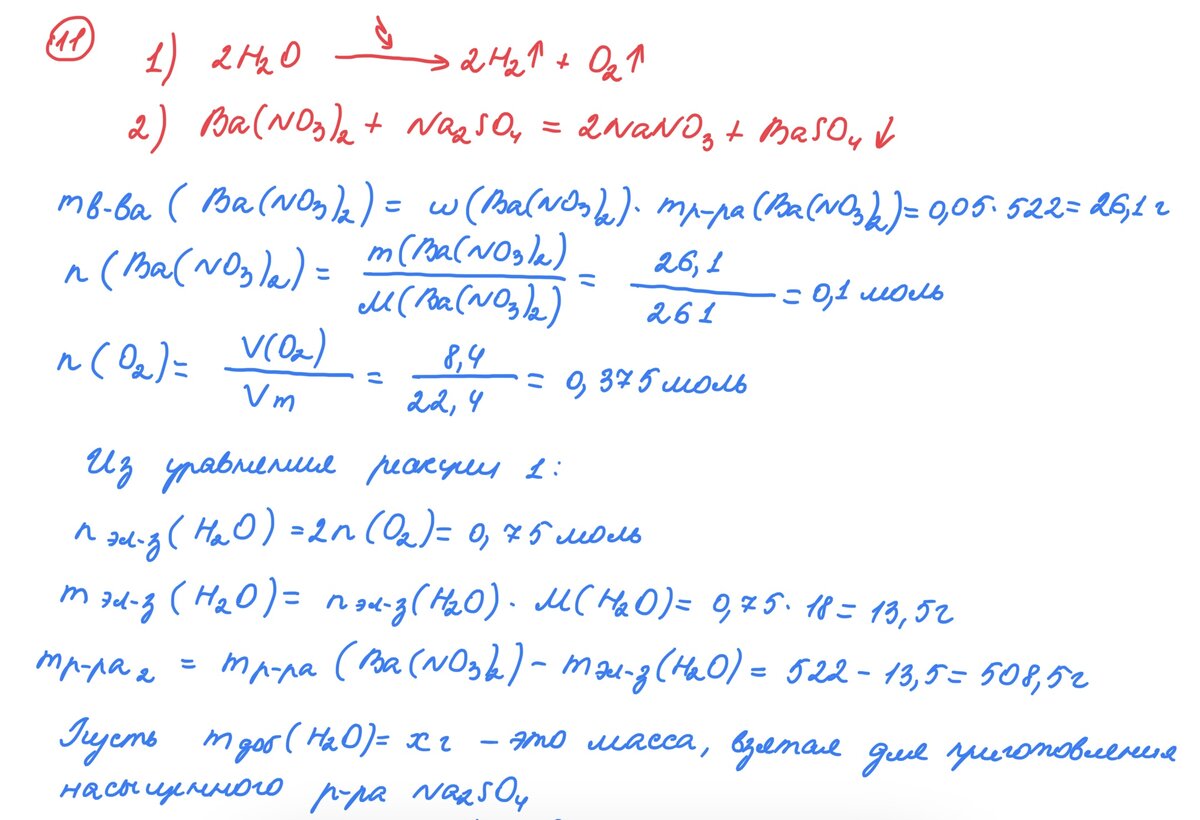 11
1) 2H₂O → 2H₂↑ + O₂↑
2) Ba(NO₃)₂ + Na₂SO₄ = 2NaNO₃ + BaSO₄↓
mв-ва (Ba(NO₃)₂) = ω(Ba(NO₃)₂)· mр-ра(Ba(NO₃)₂)= 0,05· 522= 26,1 г
n (Ba(NO₃)₂) = m(Ba(NO₃)₂) / M(Ba(NO₃)₂) = 26,1 / 261 = 0,1 моль
n (O₂)= V(O₂) / Vm = 8,4 / 22,4 = 0,375 моль
Из уравнения реакции 1:
n эл-з (H₂O) =2n(O₂)= 0,75 моль
m эл-з (H₂O)= n эл-з(H₂O) · M(H₂O)= 0,75· 18= 13,5г
mр-ра 2 = mр-ра (Ba(NO₃)₂) – m эл-з(H₂O)= 522 – 13,5= 508,5г
Пусть m доб (H₂O)= x г – это масса, взятая для приготовления
насыщенного р-ра Na₂SO₄